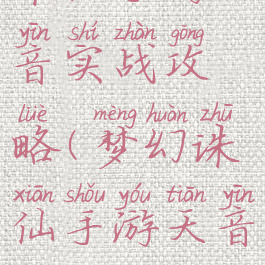 yīn shí zhàn gōng
音实战攻
lüè mèng huàn zhū
略(梦幻诛
xiān shǒu yóu tiān yīn
仙手游天音